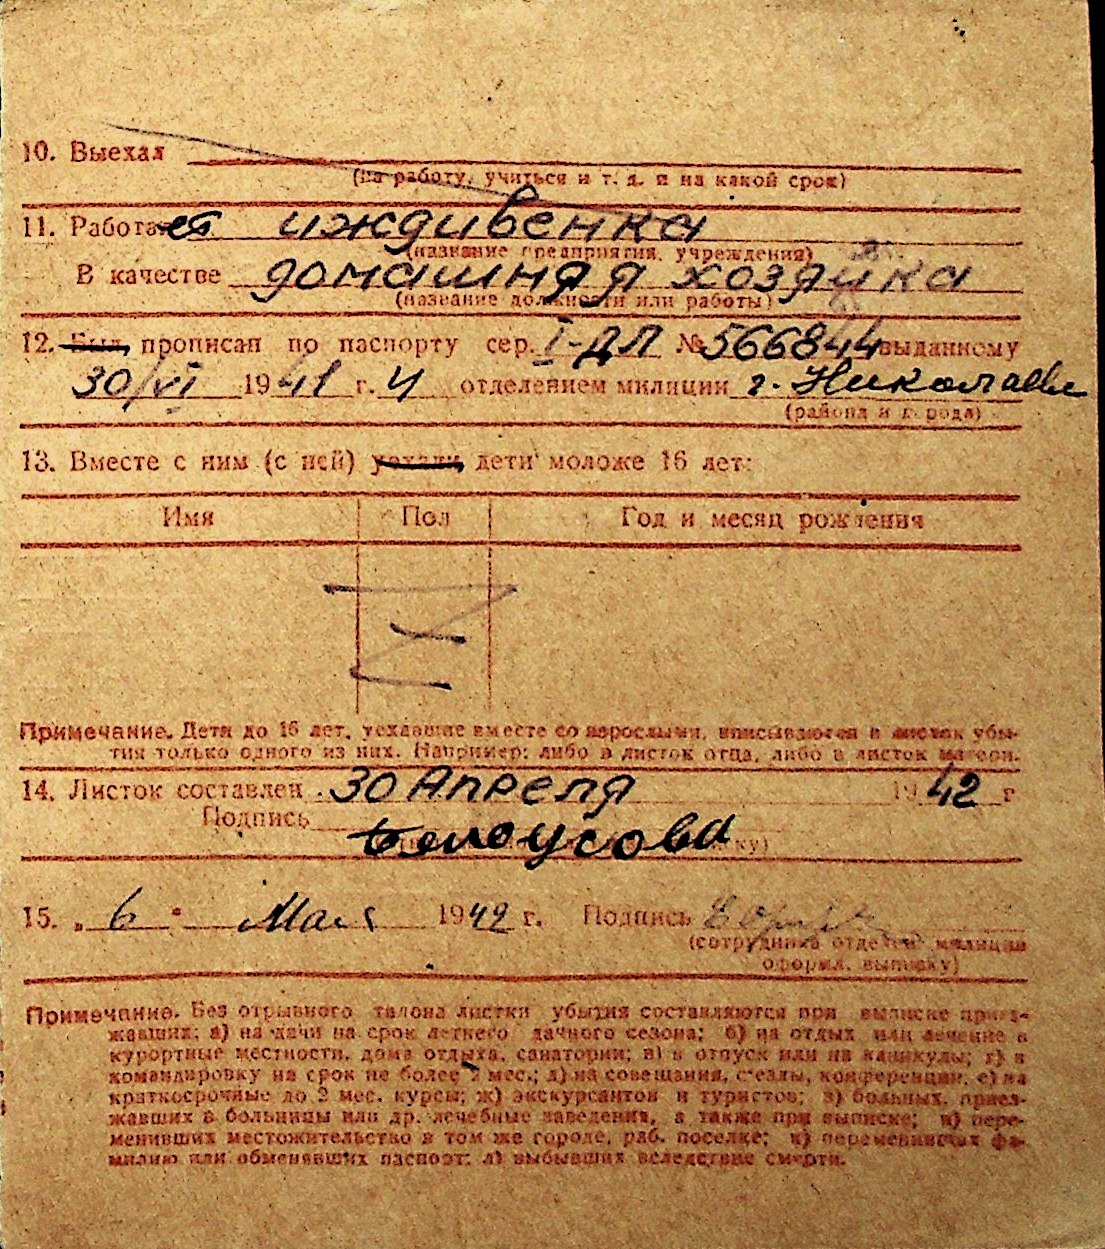 10. Выехал
(на работу, учиться и т. д. и на какой срок)
11. Работает иждивенка
(название предприятия, учреждения)
В качестве домашняя хозяйка
(название должности или работы)
12. Был прописан по паспорту сер. I-ДЛ № 566844 выданному
30/VI 1941 г. 4 отделением милиции г. Николаева
(района и города)
13. Вместе с ним (с ней) уехали дети моложе 16 лет:
Имя Пол Год и месяц рождения
Примечание. Дети до 16 лет, уехавшие вместе со взрослыми, вписываются в листок убы-
тия только одного из них. Например: либо в листок отца, либо в листок матери.
14. Листок составлен 30 Апреля 1942 г
Подпись Белоусова
15. „ 6 " Мая 1942 г. Подпись
(сотрудника отделен. милиции
оформ. выписку)
Примечание. Без отрывного талона листки убытия составляются при выписке приез-
жавших: а) на дачи на срок летнего дачного сезона; б) на отдых или лечение в
курортные местности, дома отдыха, санатории; в) в отпуск или на каникулы; г) в
командировку на срок не более 2 мес.; д) на совещания, съезды, конференции; е) на
краткосрочные до 2 мес. курсы; ж) экскурсантов и туристов; з) больных, приез-
жавших в больницы или др. лечебные заведения, а также при выписке; и) пере-
менивших местожительство в том же городе, раб. поселке; к) переменивших фа-
милию или обменявших паспорт; л) выбывших вследствие смерти.